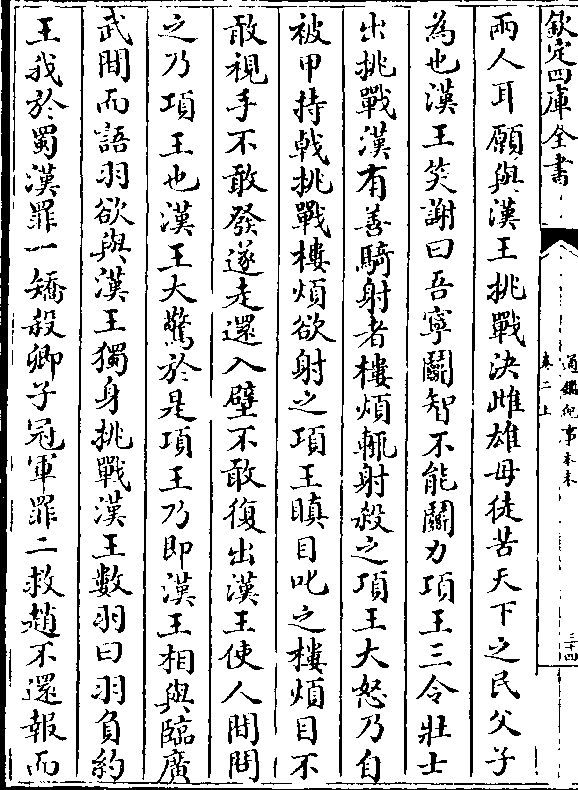 欽定四庫全書
通鑑紀事本末
卷二上
三十四
兩人耳願與漢王挑戰決雌雄毋徒苦天下之民父子
為也漢王笑謝曰吾寧鬭智不能鬭力項王三令壯士
出挑戰漢有善騎射者樓煩輒射殺之項王大怒乃自
被甲持戟挑戰樓煩欲射之項王瞋目叱之樓煩目不
敢視手不敢發遂走還入壁不敢復出漢王使人間問
之乃項王也漢王大驚於是項王乃即漢王相與臨廣
武間而語羽欲與漢王獨身挑戰漢王數羽曰羽負約
王我於蜀漢罪一矯殺卿子冠軍罪二救趙不還報而